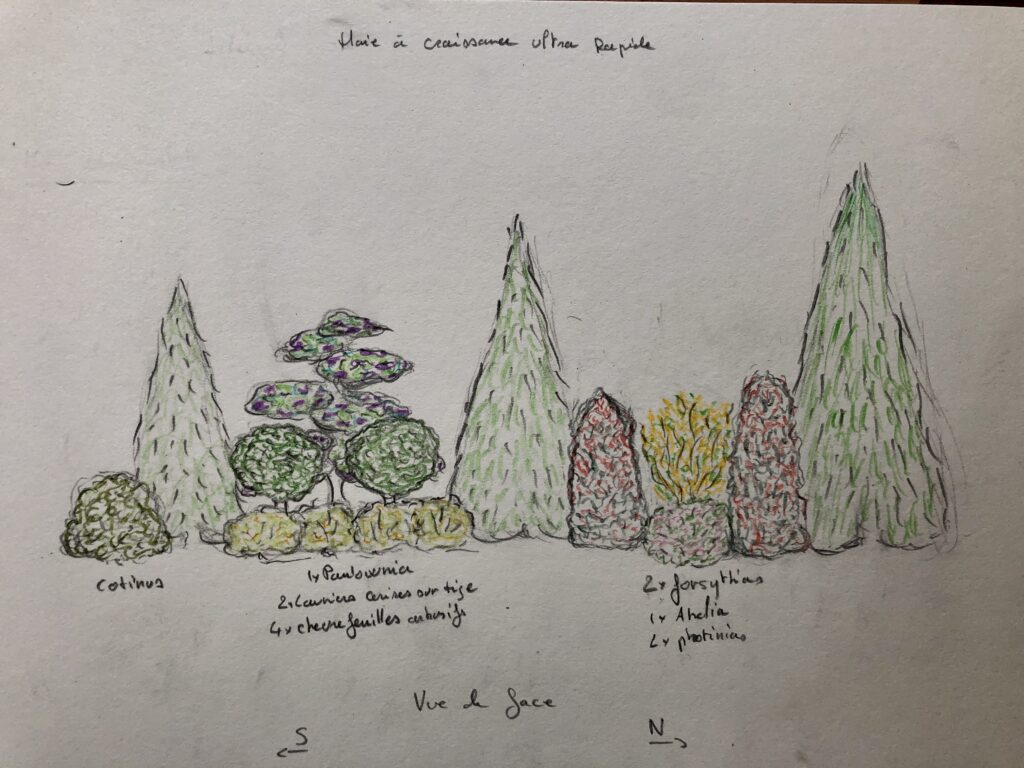 Haie à croissance ultra Rapide
Cotinus
1x Paulownia
2x Lauriers cerises sur tige
4x chevrefeuilles arbustifs
2x forsythias
1x Abelia
2x photinias
Vue de face
S
N